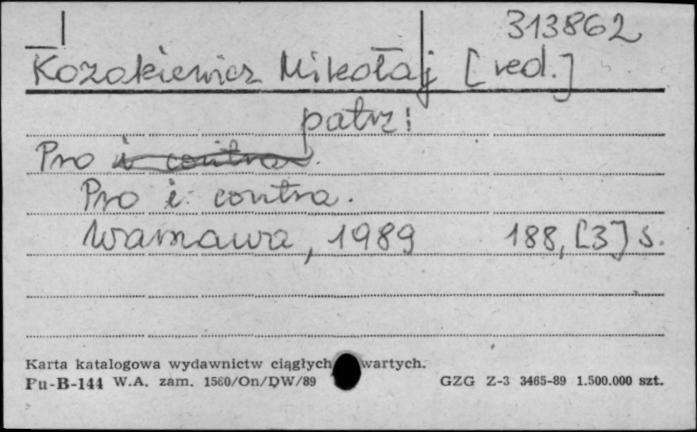 313862
Kozakiewicz Mikołaj [red.]
patrz:
Pro i contra.
Pro i contra.
Warszawa, 1989 188, [3] s.
Karta katalogowa wydawnictw ciągłych wartych.
Pu-B-144 W.A. zam. 1560/On/DW/89 GZG Z-3 3465-89 1.500.000 szt.